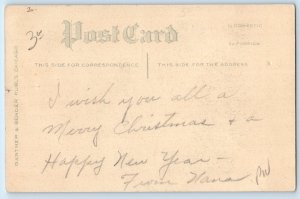 Post Card
1¢ DOMESTIC
2¢ FOREIGN
THIS SIDE FOR CORRESPONDENCE
THIS SIDE FOR THE ADDRESS
I wish you all a
Merry Christmas & a
Happy New Year –
From Nana